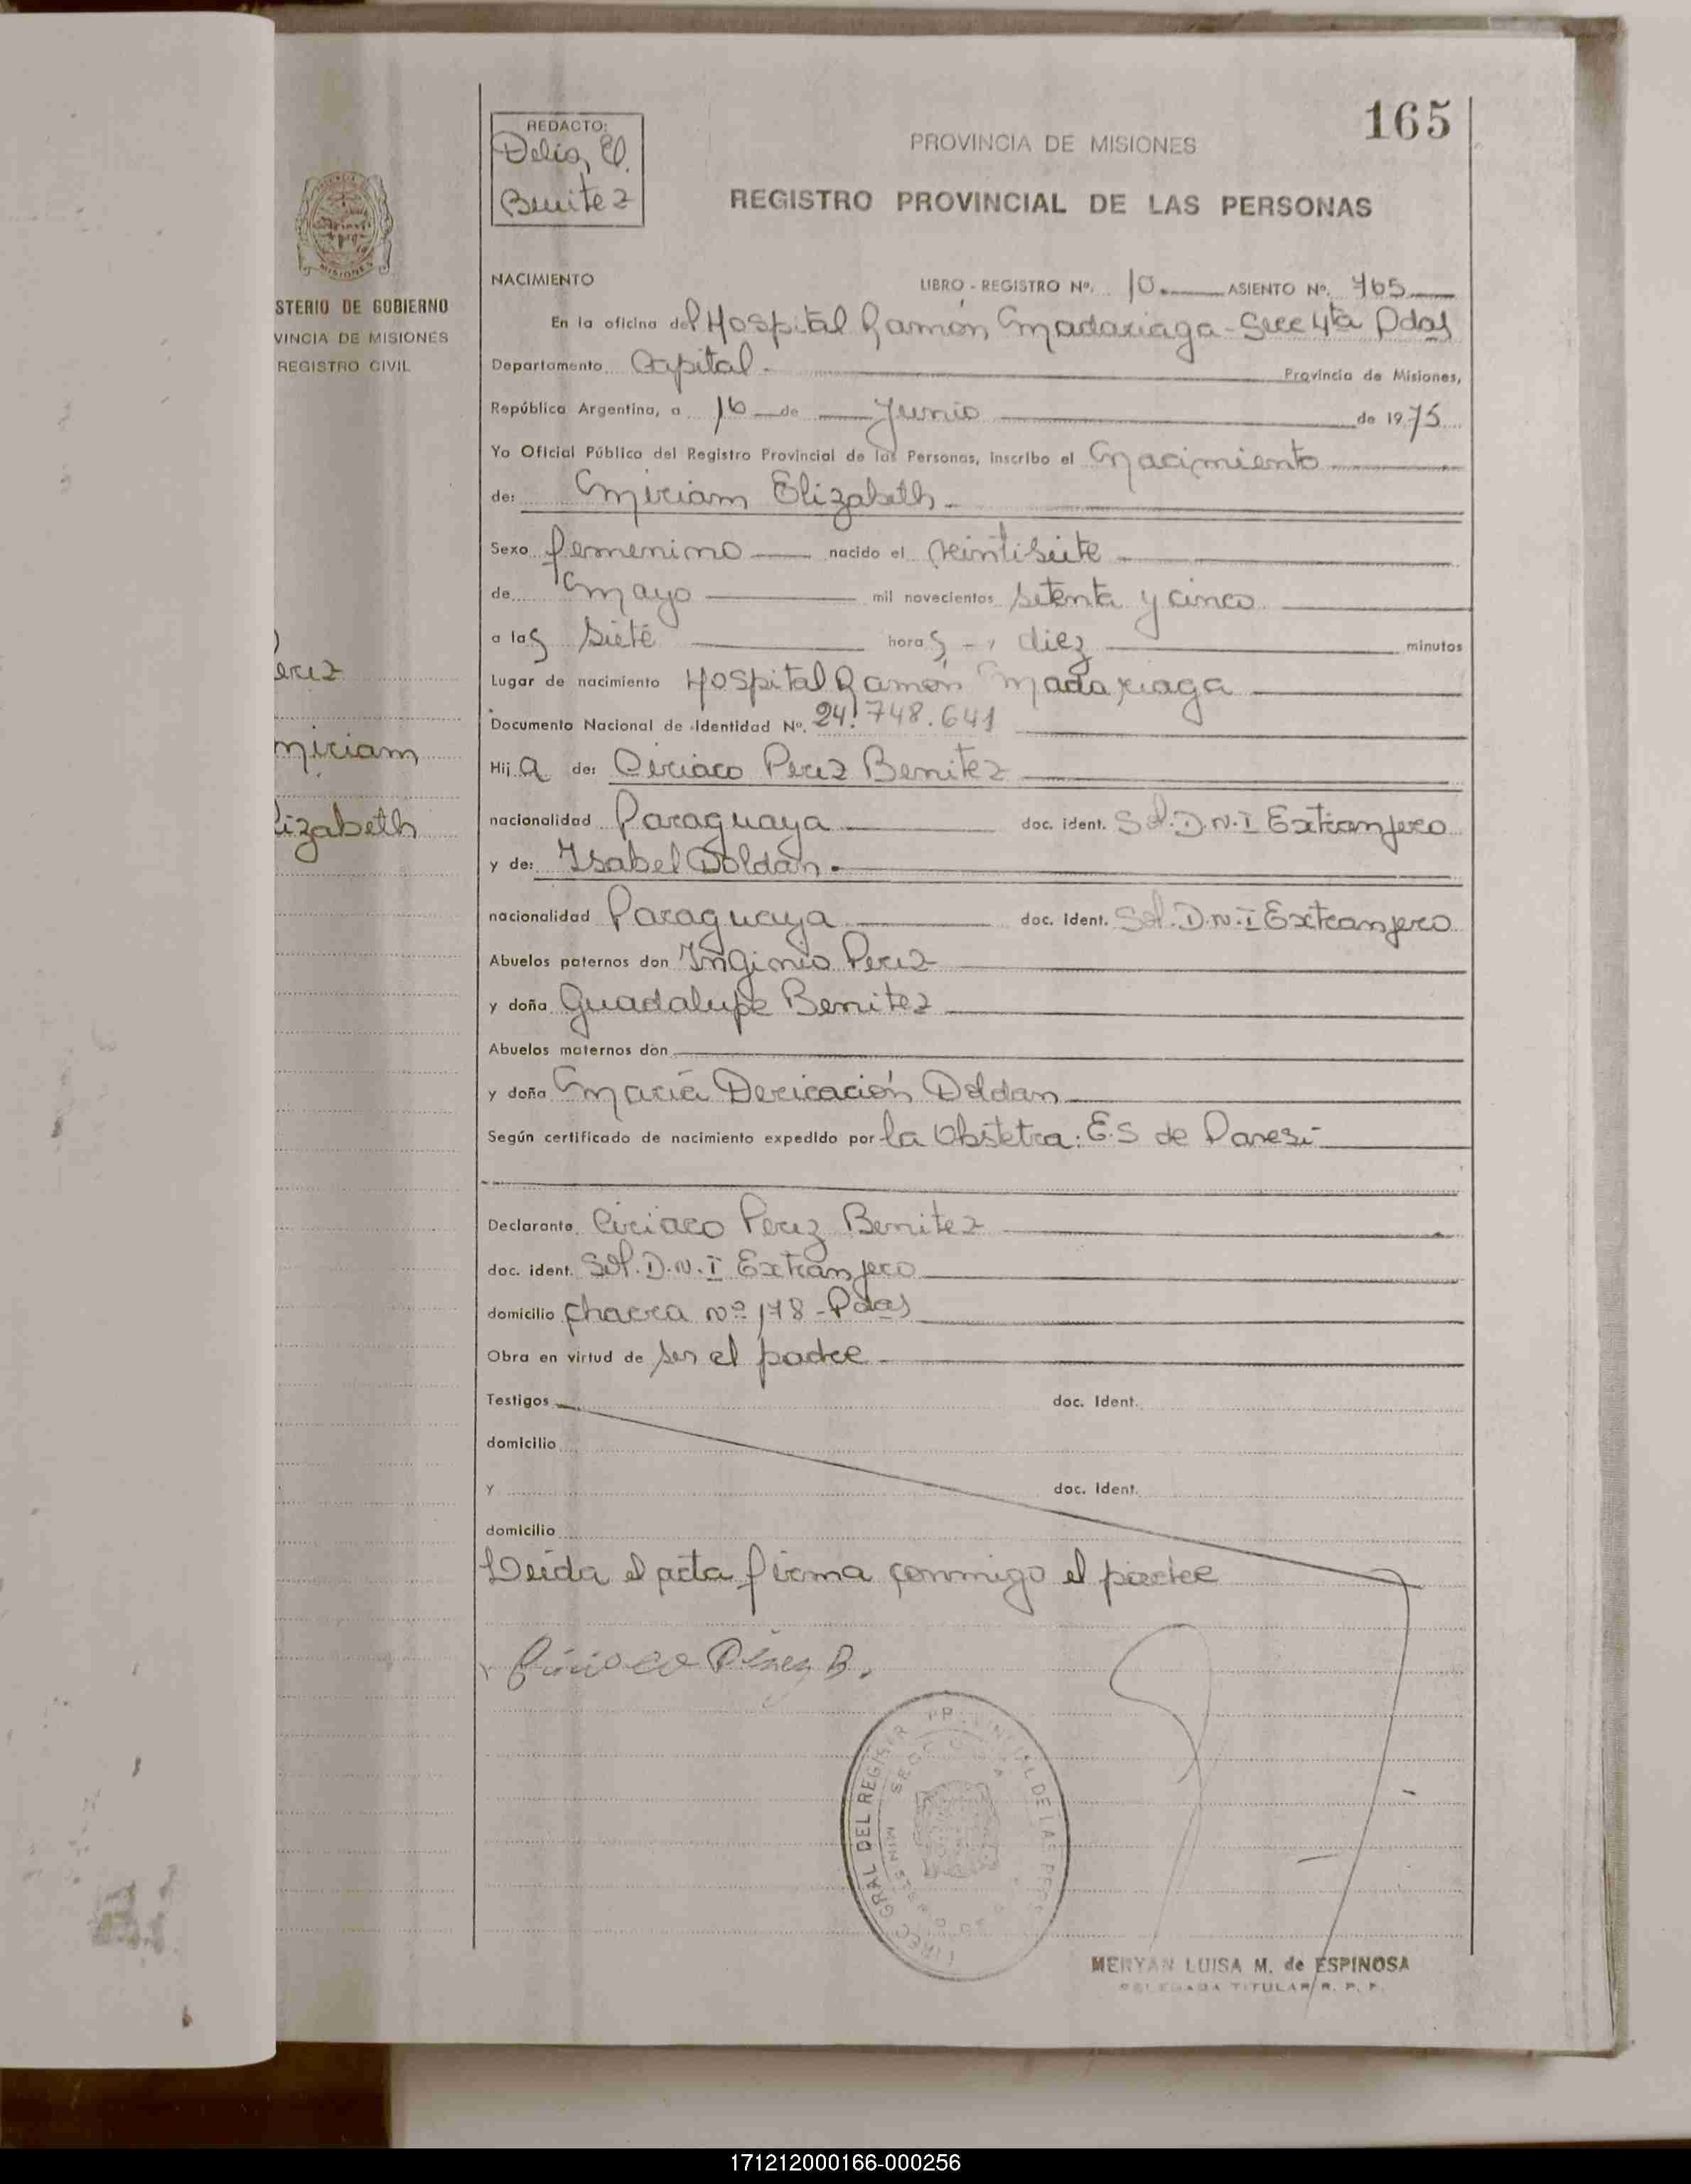 165
REDACTO:
Delia, El.
Benitez
PROVINCIA DE MISIONES
REGISTRO PROVINCIAL DE LAS PERSONAS
MISIONES
STERIO DE GOBIERNO
VINCIA DE MISIONES
REGISTRO CIVIL
erez
miriam
lizabeth
NACIMIENTO LIBRO - REGISTRO Nº. 10. ASIENTO Nº. 765
En la oficina del Hospital Ramón Madariaga - Secc 4ta Pdas
Departamento Capital. Provincia de Misiones,
República Argentina, a 16 de Junio de 1975
Yo Oficial Público del Registro Provincial de las Personas, inscribo el Nacimiento
de: Miriam Elizabeth.
Sexo femenino nacido el veintisiete
de Mayo mil novecientos setenta y cinco
a las siete horas - y diez minutos
Lugar de nacimiento Hospital Ramón Madariaga
Documento Nacional de Identidad Nº. 24.748.641
Hija de: Ciriaco Perez Benitez
nacionalidad Paraguaya doc. ident. Sol. D.N.I Extranjero
y de: Isabel Doldan.
nacionalidad Paraguaya doc. ident. Sol. D.N.I Extranjero
Abuelos paternos don Inginio Perez
y doña Guadalupe Benitez
Abuelos maternos don
y doña María Doldan
Según certificado de nacimiento expedido por la Obstetra: E.S de Danesi
Declarante Ciriaco Perez Benitez
doc. ident. Sol. D.N.I Extranjero
domicilio Chacra Nº 178 - Pdas
Obra en virtud de ser el padre
Testigos doc. Ident.
domicilio
y doc. Ident.
domicilio
Leida el acta firma conmigo el padre
Ciriaco Pérez B.
DIREC GRAL DEL REGISTR PROVINCIAL DE LAS PERS
MERYAN LUISA M. de ESPINOSA
DELEGADA TITULAR R. P. P.
171212000166-000256